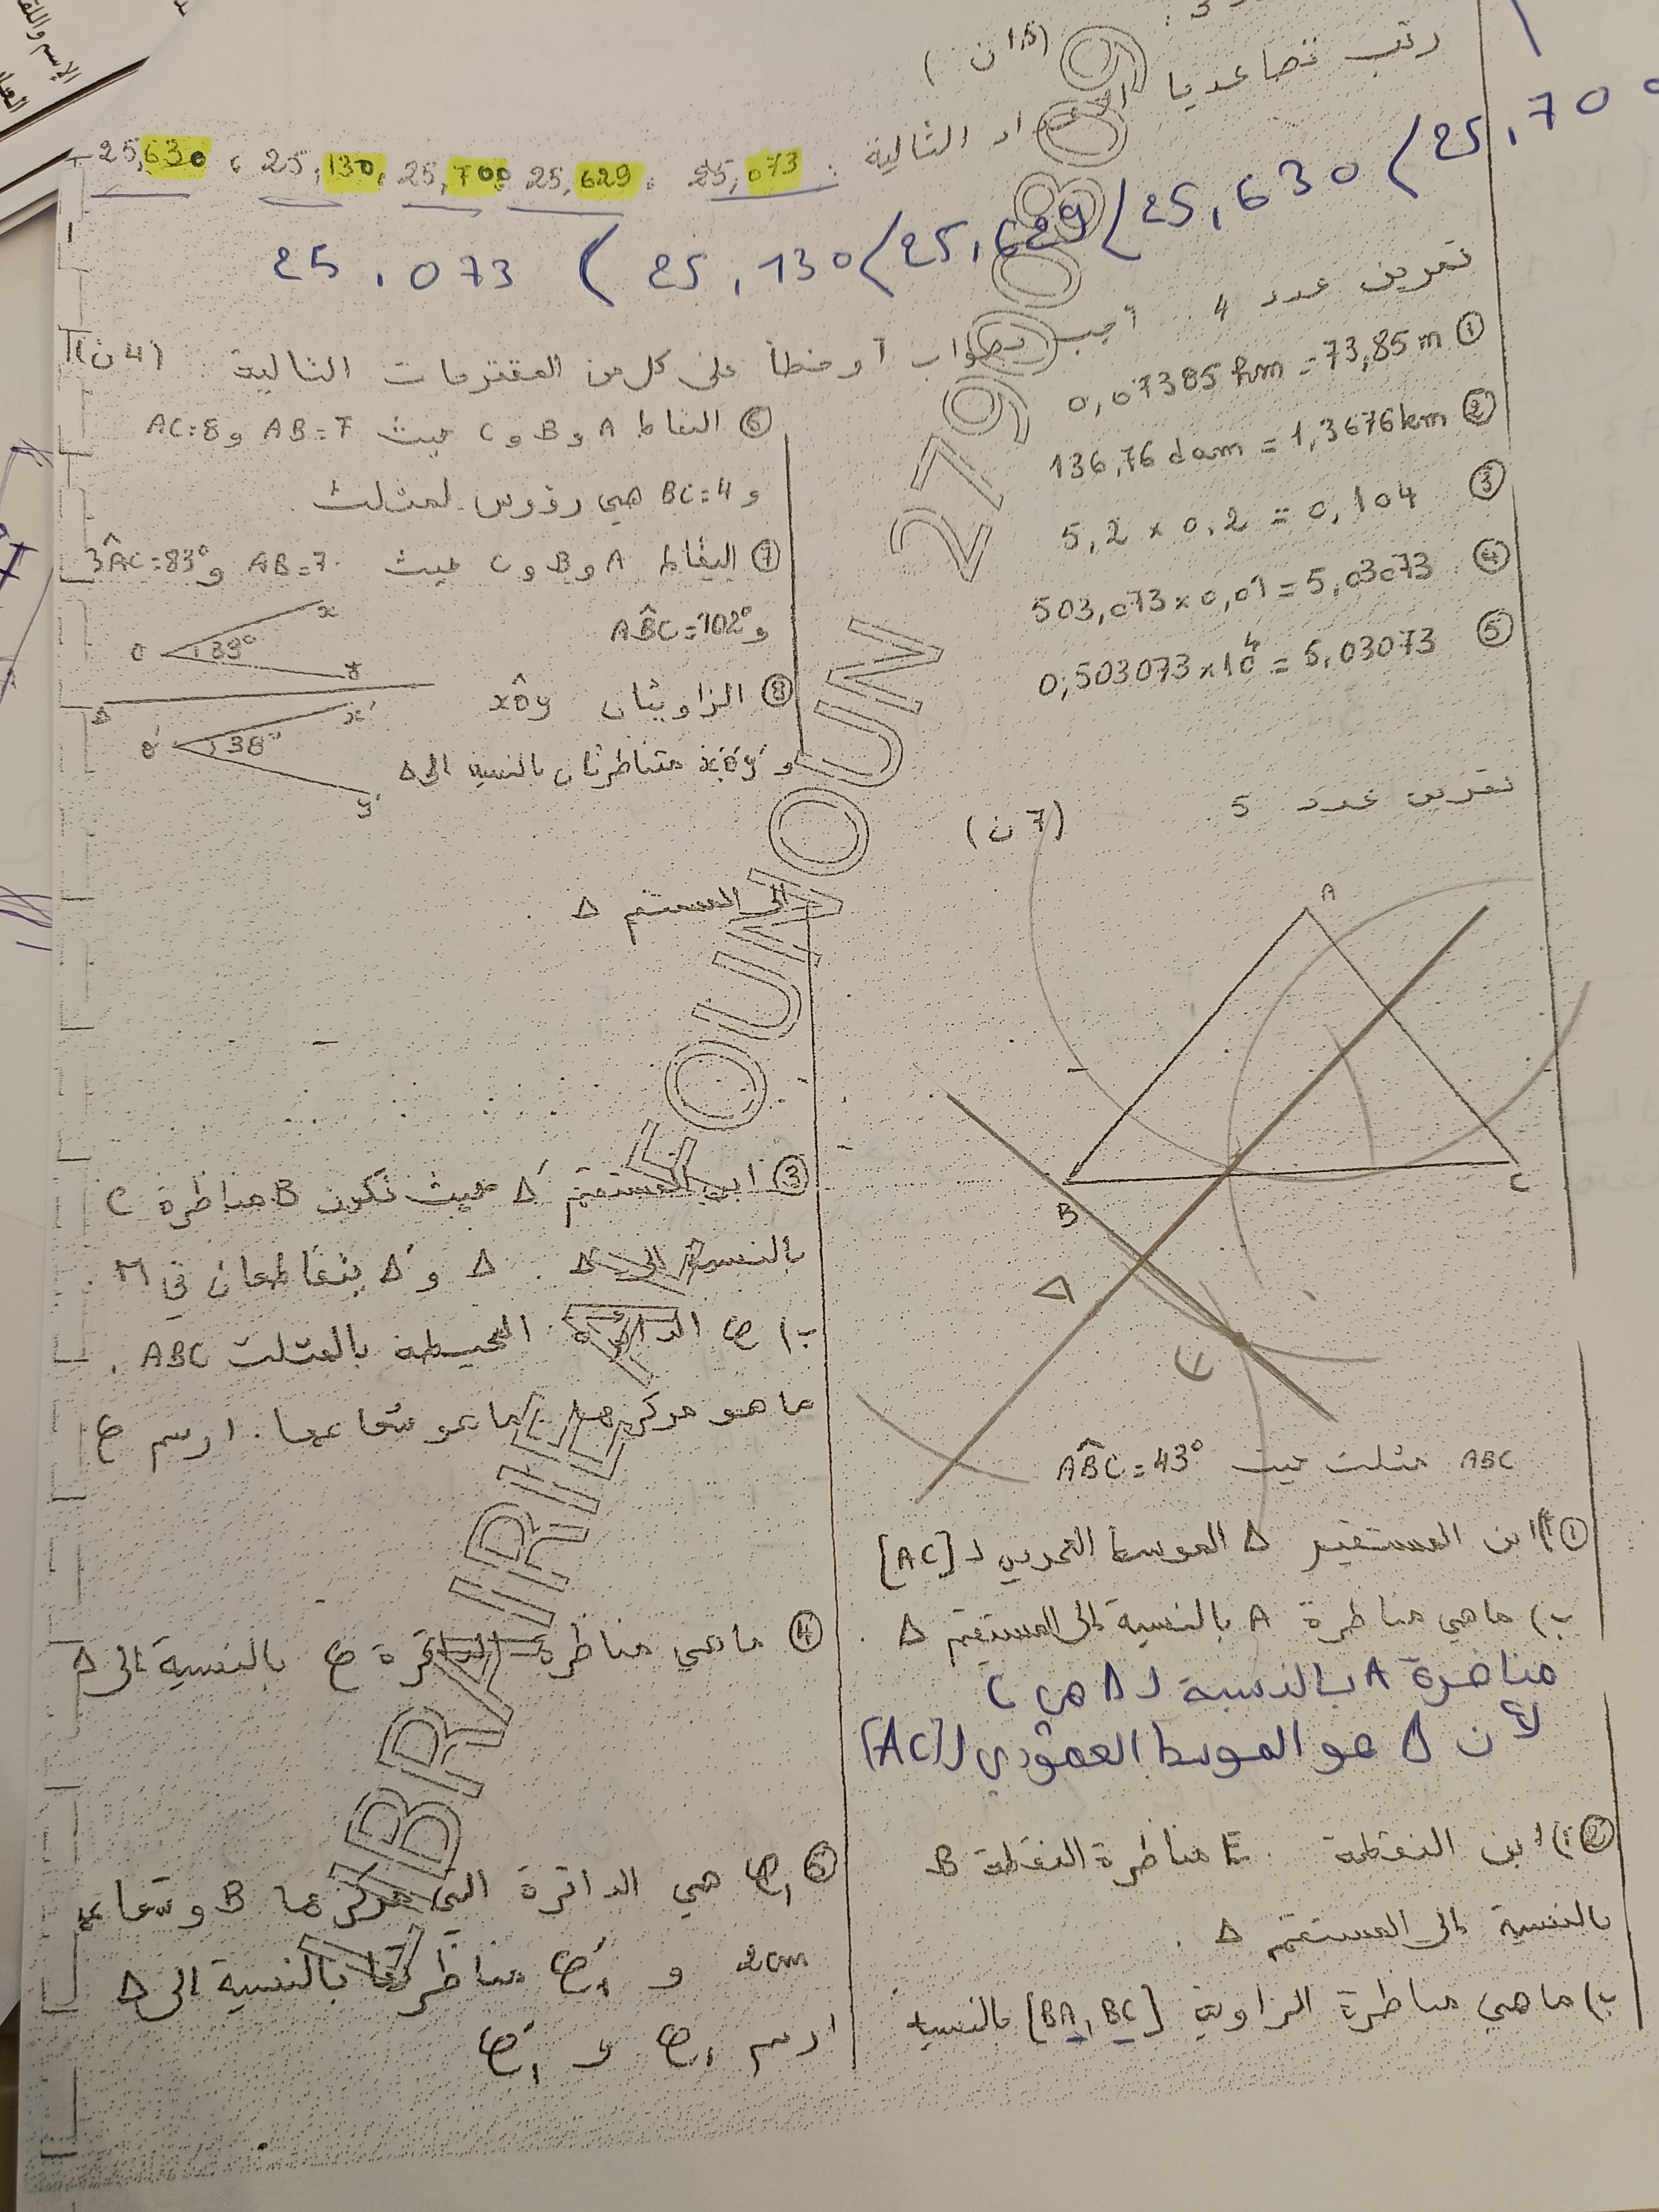 رتب تصاعديا الأعداد التالية :
25,630 ، 25,130 ، 25,700 ، 25,629 ، 25,073
25,073 ( 25,130 ( 25,629 ( 25,630 ( 25,700
تمرين عدد 4 أجب بصواب أو خطأ على كل من المقترحات التالية (4ن)
① 0,07385 hm = 73,85 m
② 136,76 dam = 1,3676 km
③ 5,2 x 0,2 = 0,104
④ 503,073 x 0,01 = 5,03073
⑤ 0,503073 x 10⁴ = 5,03073
⑥ النقاط A و B و C حيث AB=7 و AC=8
و BC=4 هي رؤوس لمثلث
⑦ النقاط A و B و C حيث AB=7 و BÂC=83°
و AB̂C=102°
⑧ الزاويتان xôy
و x'ô'y' متناظرتان بالنسبة الى Δ
O x 38° y
Δ
O' x' 38° y'
تمرين عدد 5 (7 ن)
A
B
C
Δ
E
ABC مثلث حيث AB̂C = 43°
① أ) ابن المستقيم Δ الموسط العمودي لـ [AC]
ب) ما هي مناظرة A بالنسبة الى المستقيم Δ .
مناضرة A بالنسبة لـ Δ هي C
لأن Δ هو الموسط العمودي لـ [AC]
② أ) ابن النقطة E مناظرة النقطة B
بالنسبة الى المستقيم Δ .
ب) ما هي مناظرة الزاوية [BA, BC] بالنسبة
الى المستقيم Δ .
③ ابن المستقيم Δ' حيث تكون B مناظرة C
بالنسبة الى Δ' . Δ و Δ' يتقاطعان في M .
ب) C الدائرة المحيطة بالمثلث ABC .
ما هو مركزها . ما هو شعاعها . ارسم C
④ ما هي مناظرة الدائرة C بالنسبة الى Δ
⑤ C₁ هي الدائرة التي مركزها B وشعاعها
2cm و C'₁ مناظرتها بالنسبة الى Δ
ارسم C₁ و C'₁
LIBRAIRIE TAKFOUNOUN 27908089